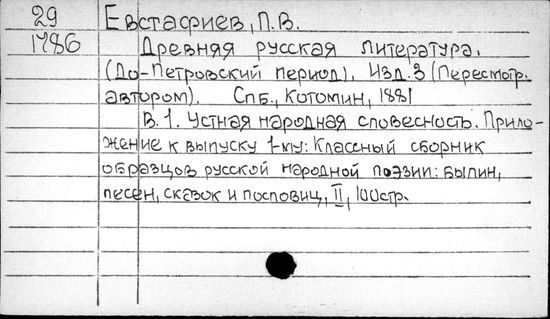 29 Евстафиев, П.В.
1786 Древняя русская литература.
(До-Петровский период). Изд. 3 (Пересмотр.
автором). Спб., Котомин, 1881
В. 1. Устная народная словесность. Прило-
жение к выпуску 1-му: Классный сборник
образцов русской народной поэзии: былин,
песен, сказок и пословиц, II, 100стр.